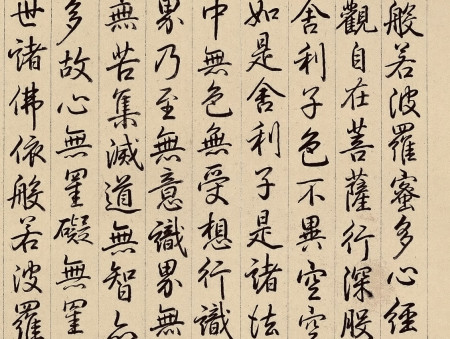 般若波羅蜜多心經
觀自在菩薩行深般
舍利子色不異空空
如是舍利子是諸法
中無色無受想行識
界乃至無意識界無
無苦集滅道無智亦
多故心無罣礙無罣
世諸佛依般若波羅